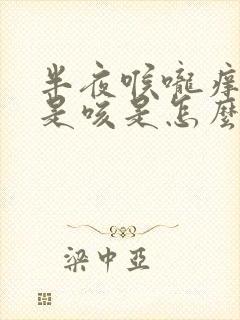 半夜喉嚨痒
是咳是怎麼
梁中亞